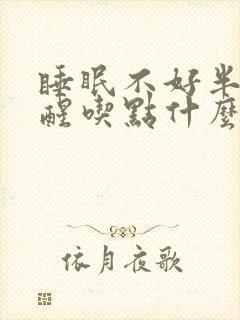 睡眠不好半
醒喫點什麼
依月夜歌